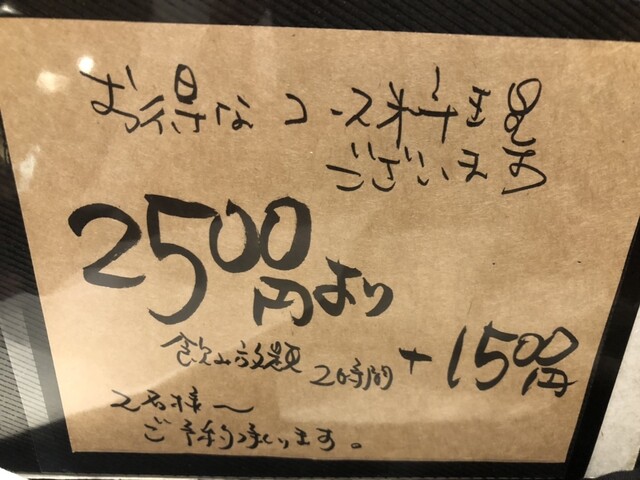 お得なコース料理も
ございます
2500円より
飲み放題 2時間 +1500円
2名様〜
ご予約承ります。